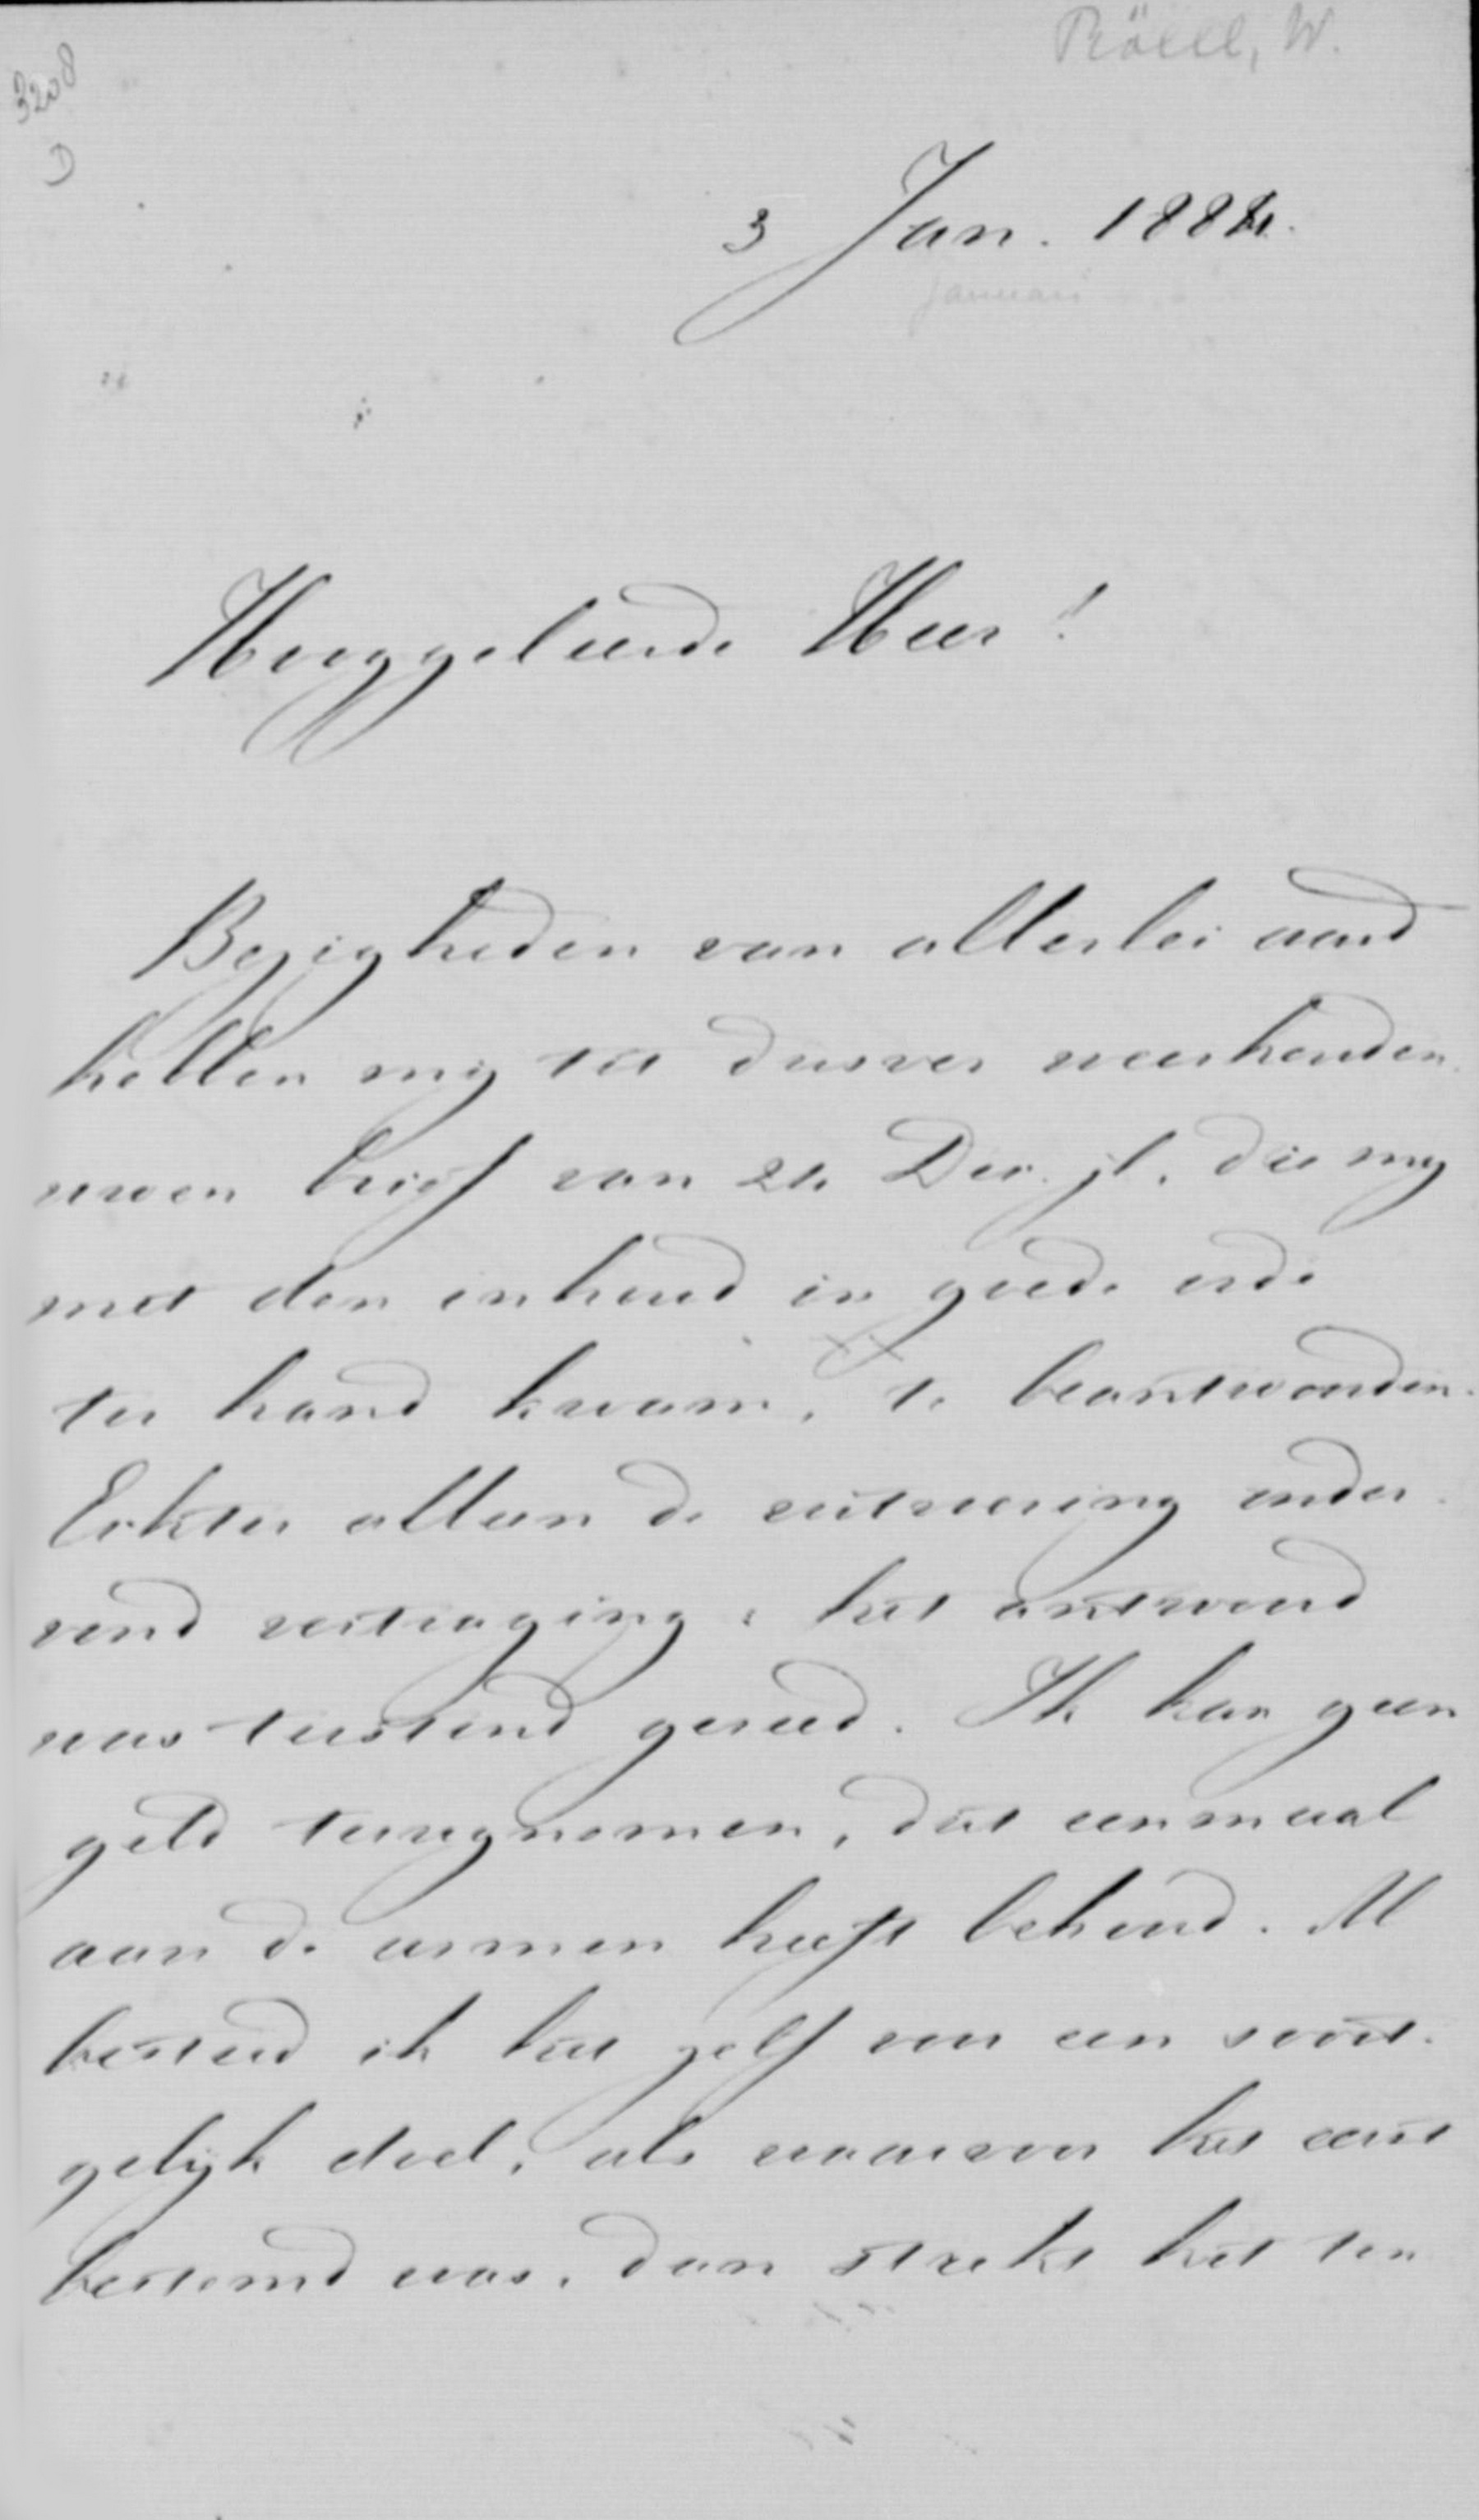 Röell, W.
3208
D
3 Jan. 1884.
Januari
Hooggeleerde Heer!
Bezigheden van allerlei aard
hebben mij tot dusver weerhouden
uwen brief van 21 Dec. jl. die mij
met den inhoud in goede orde
ter hand kwam, te beantwoorden.
Echter alleen de uitvoering onder-
vond vertraging: het antwoord
was terstond gereed. Ik kan geen
geld terugnemen, dat eenmaal
aan de armen heeft behoord. Al
besteed ik het zelf voor een soort-
gelijk doel, als waarvoor het eerst
bestemd was, dan strekt het ten